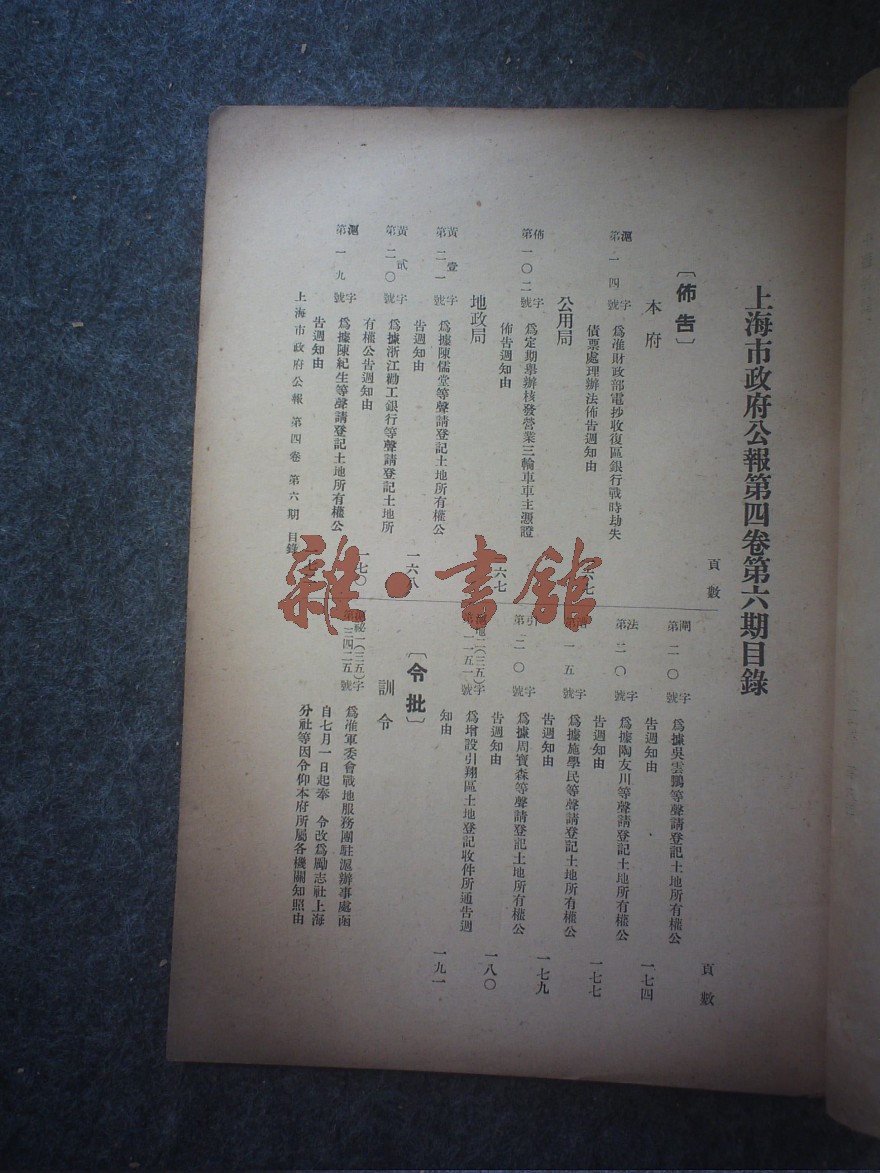 上海市政府公報第四卷第六期目錄
頁數
〔佈告〕
本府
滬字第一四號 爲准財政部電抄收復區銀行戰時劫失
債票處理辦法佈告週知由
公用局
佈字第一〇二號 爲定期舉辦核發營業三輪車車主憑證
佈告週知由 六七
地政局
黃壹字第二一號 爲據陳儒堂等聲請登記土地所有權公
告週知由 一六八
黃贰字第二〇號 爲據浙江勸工銀行等聲請登記土地所
有權公告週知由 一七〇
滬字第一九號 爲據陳紀生等聲請登記土地所有權公
告週知由
頁數
閘字第二〇號 爲據吳雲鵬等聲請登記土地所有權公
告週知由 一七四
法字第二〇號 爲據陶友川等聲請登記土地所有權公
告週知由 一七七
字第一五號 爲據施學民等聲請登記土地所有權公
告週知由 一七九
引字第二〇號 爲據周寶森等聲請登記土地所有權公
告週知由 一八〇
地二(三五)字第一二五一號 爲增設引翔區土地登記收件所通告週
知由 一九一
〔令批〕
訓令
秘二(三五)字第三四二五號 爲准軍委會戰地服務團駐滬辦事處函
自七月一日起奉 令改爲勵志社上海
分社等因令仰本府所屬各機關知照由
上海市政府公報 第四卷 第六期 目錄
雜·書館